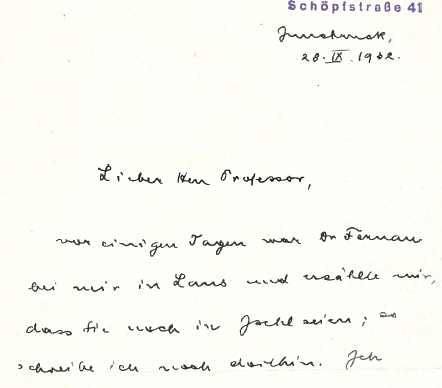 Schöpfstraße 41
Innsbruck,
20. IX. 1962.
Lieber Herr Professor,
vor einigen Tagen war Dr Fernau
bei mir in Lans und erzählte mir,
dass Sie noch in Ischl seien; so
schreibe ich noch dorthin. Ich